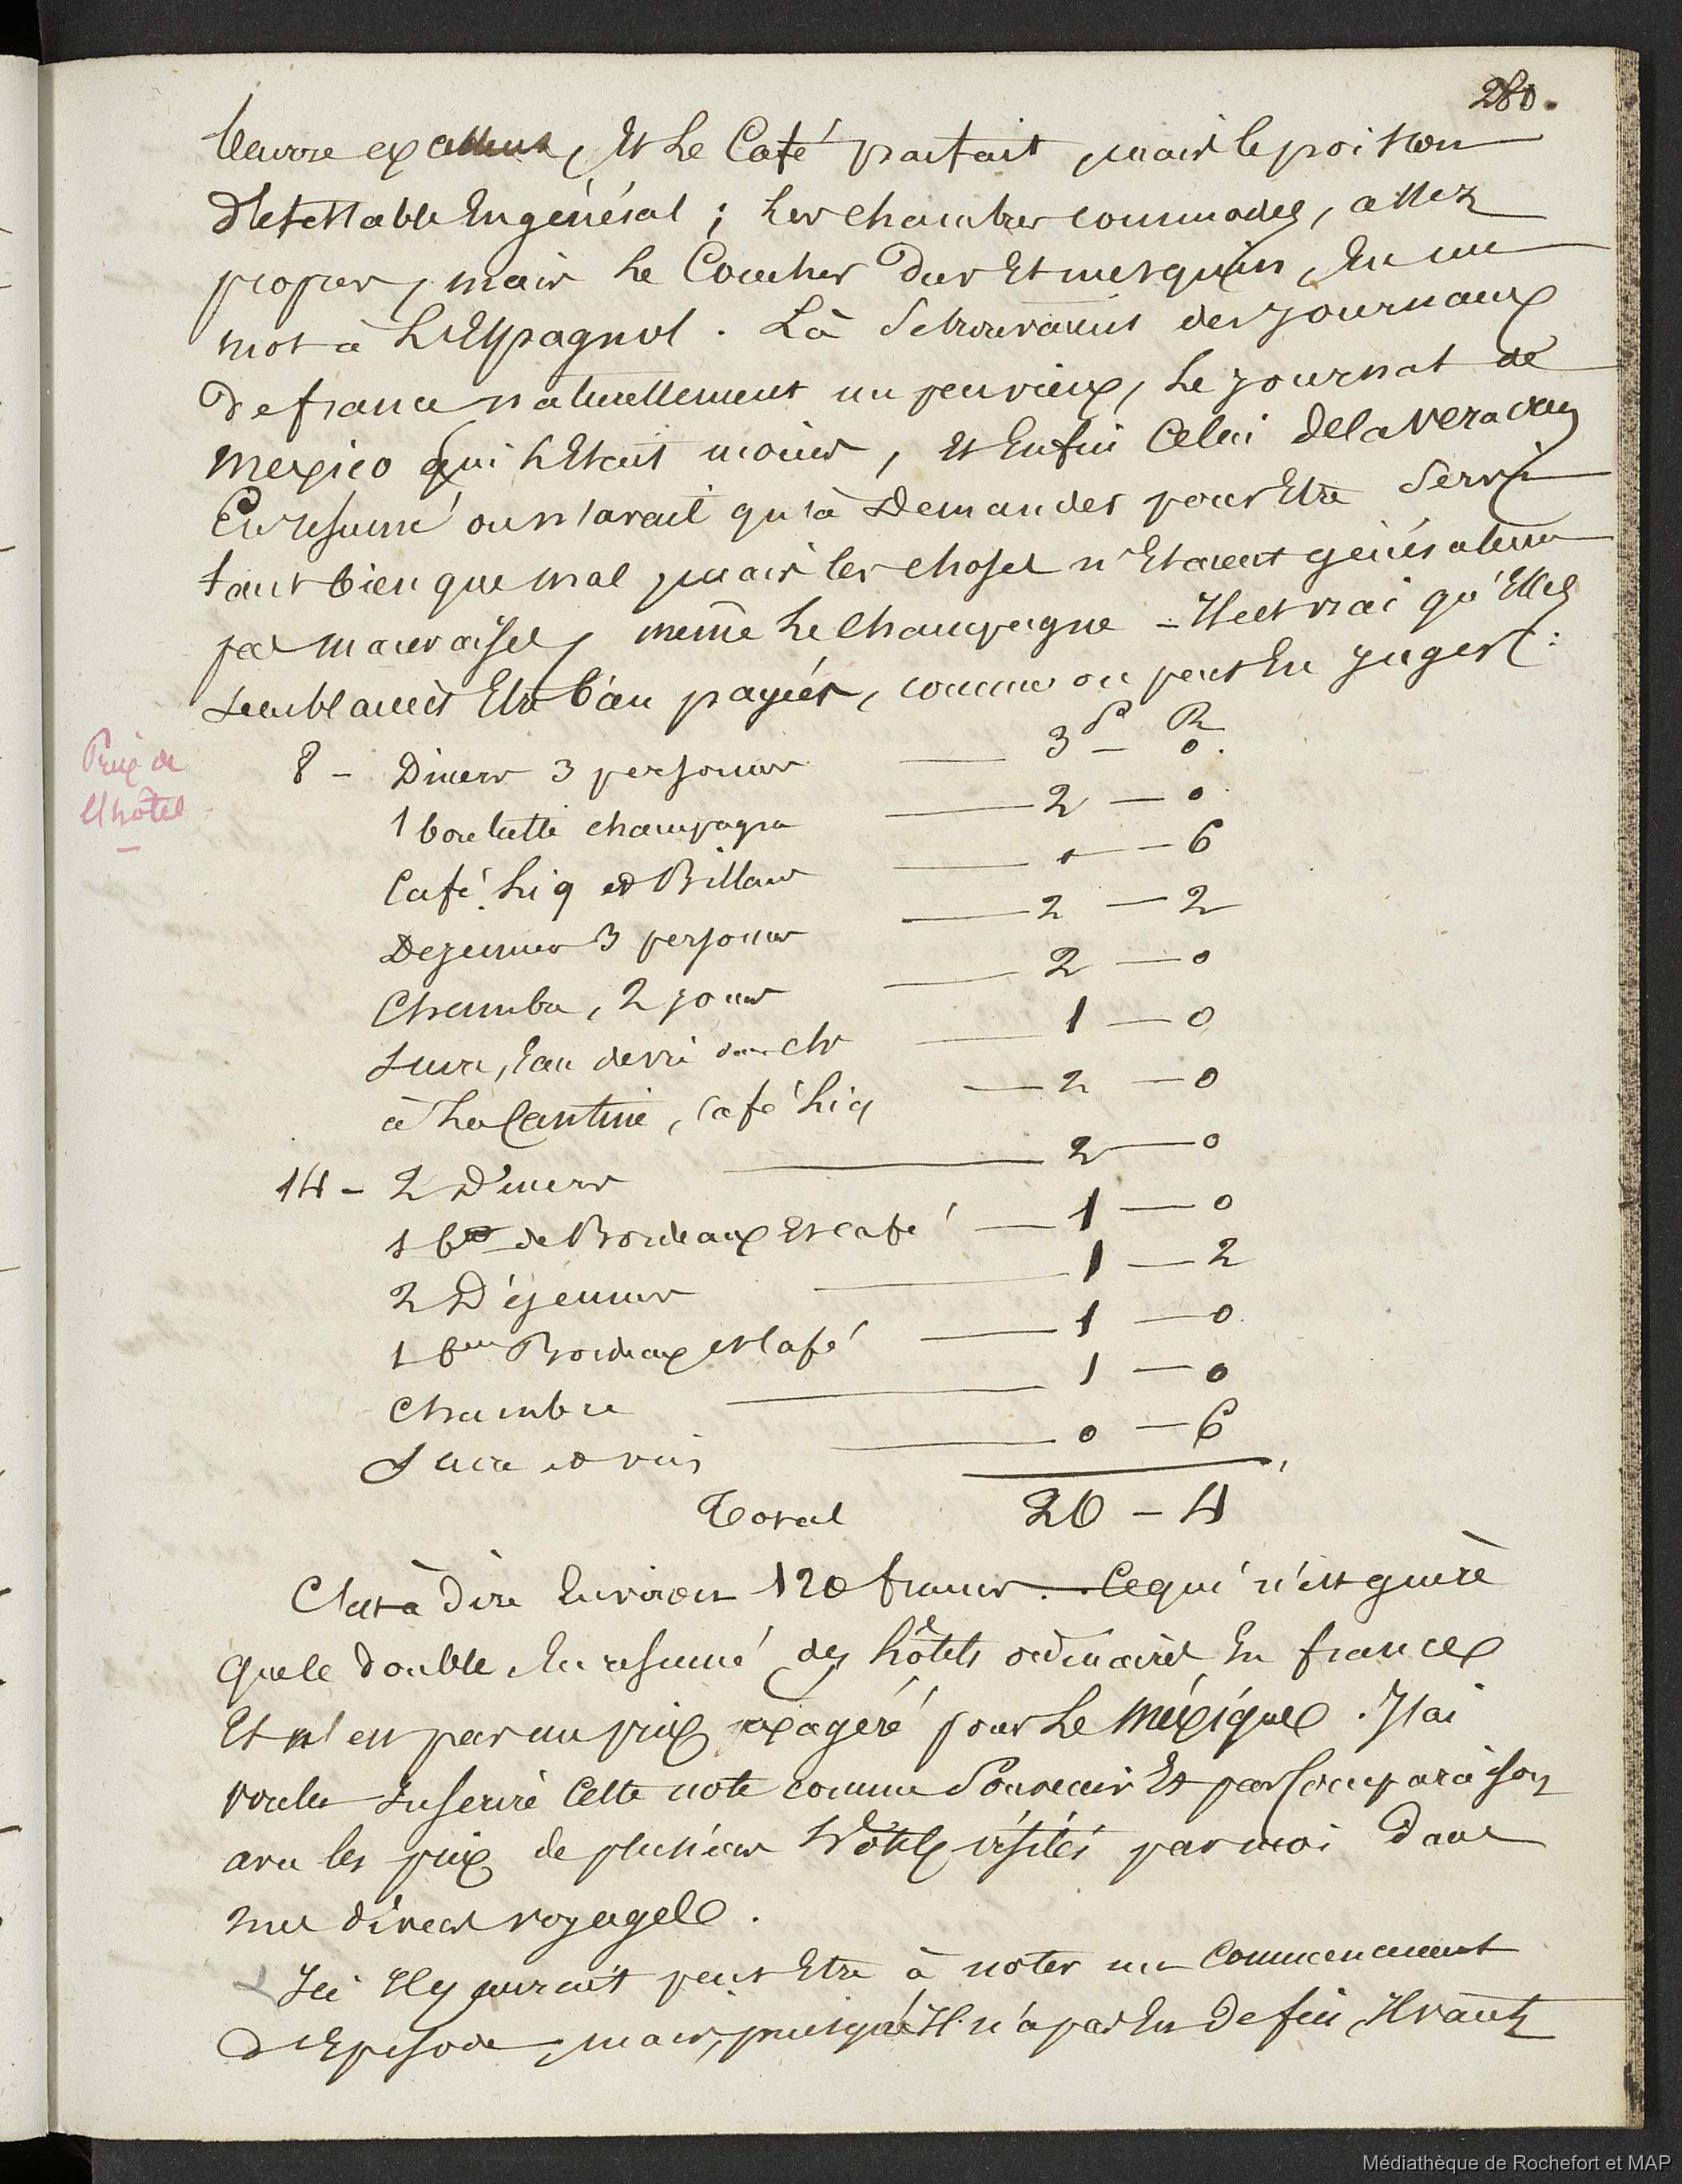 280.
beurre excellent, Et Le Café parfait, mais le poisson
détestable En général ; Les chambres commodes, assez
propres, mais Le Coucher Dur Et mesquin, En un
mot à L'Espagnol. Là se trouvaient des journaux
De france naturellement un peu vieux, Le journal de
Mexico qui L'Etait moins, Et Enfin Celui de la Vera cruz
En résumé on n'avait qu'à Demander pour Etre servi
tant bien que mal, mais les choses n'Etaient généralem
pas mauvaises, même Le Champagne - Il est vrai qu'Elles
semblaient Etre bien payées, comme on peut En juger :
Prix de
l'hôtel
P R
8 - Diners 3 personnes — 3 — 0.
1 bouteille champagne — 2 — 0
Café Liq et Billard — — 6
Dejeuner 3 personnes — 2 — 2
Chambre, 2 jours — 2 — 0
Sucre, Eau de vie — 1 — 0
à La Cantine, Café Liq — 2 — 0
14 - 2 Diners — 2 — 0
1 blle de Bordeaux Et café — 1 — 0
2 Déjeuners — 1 — 2
1 blle Bordeaux et Café — 1 — 0
Chambre — 1 — 0
Sucre et vin — 0 — 6
Total 20 — 4
C'est à Dire Environ 120 francs. Ce qui n'est guère
que le double En résumé des hôtels ordinaires En france
Et n'est pas un prix exagéré pour Le Méxique. J'ai
voulu Inserire Cette note comme Souvenir Et par Comparaison
avec les prix de plusieurs Hôtels visités par moi Dans
mes divers voyages.
Ici Il y aurait peut Etre à noter un Commencement
d'Episode, mais, puisqu'Il n'a pas Eu De fin, Il vaut
Médiathèque de Rochefort et MAP